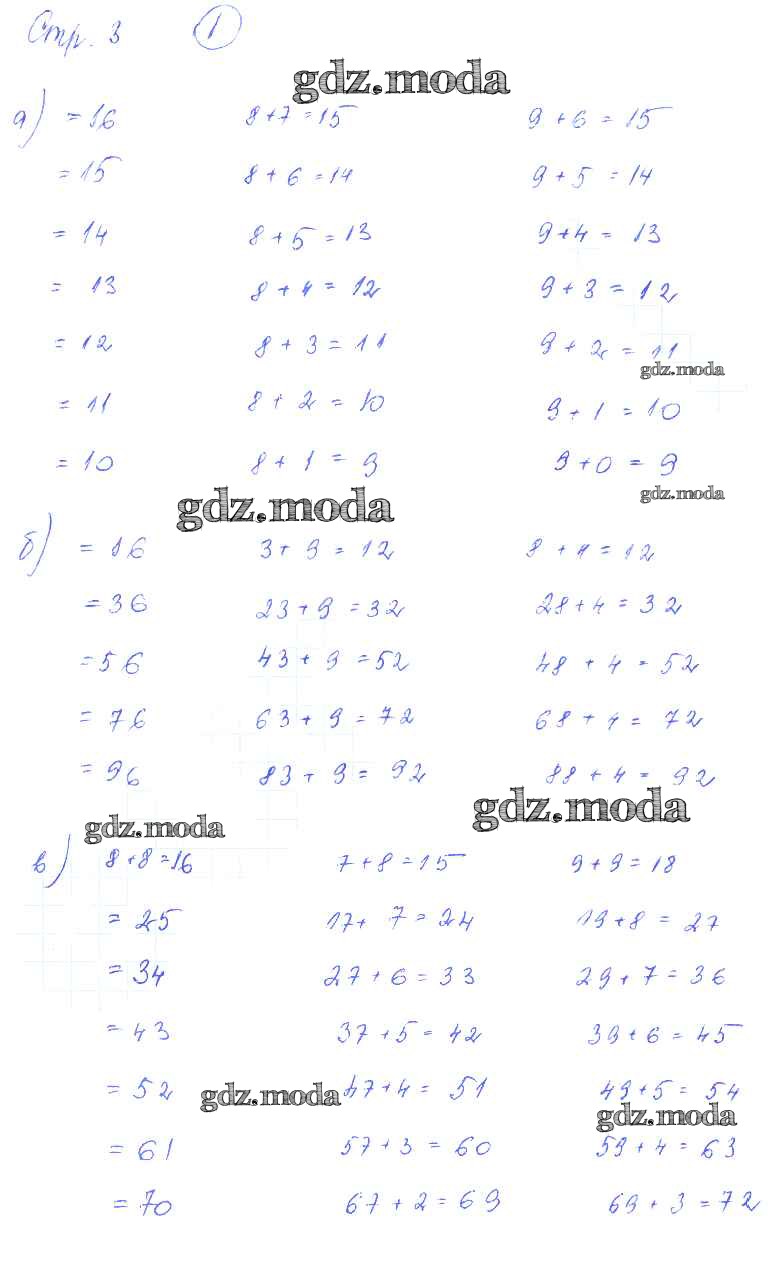 Стр. 3 1
gdz.moda
а) = 16 8+7 = 15 9 + 6 = 15
= 15 8 + 6 = 14 9 + 5 = 14
= 14 8 + 5 = 13 9 + 4 = 13
= 13 8 + 4 = 12 9 + 3 = 12
= 12 8 + 3 = 11 9 + 2 = 11
gdz.moda
= 11 8 + 2 = 10 9 + 1 = 10
= 10 8 + 1 = 9 9 + 0 = 9
gdz.moda
gdz.moda
б) = 16 3 + 9 = 12 8 + 4 = 12
= 36 23 + 9 = 32 28 + 4 = 32
= 56 43 + 9 = 52 48 + 4 = 52
= 76 63 + 9 = 72 68 + 4 = 72
= 96 83 + 9 = 92 88 + 4 = 92
gdz.moda
gdz.moda
в) 8 + 8 = 16 7 + 8 = 15 9 + 9 = 18
= 25 17 + 7 = 24 19 + 8 = 27
= 34 27 + 6 = 33 29 + 7 = 36
= 43 37 + 5 = 42 39 + 6 = 45
= 52 47 + 4 = 51 49 + 5 = 54
gdz.moda
gdz.moda
= 61 57 + 3 = 60 59 + 4 = 63
= 70 67 + 2 = 69 69 + 3 = 72